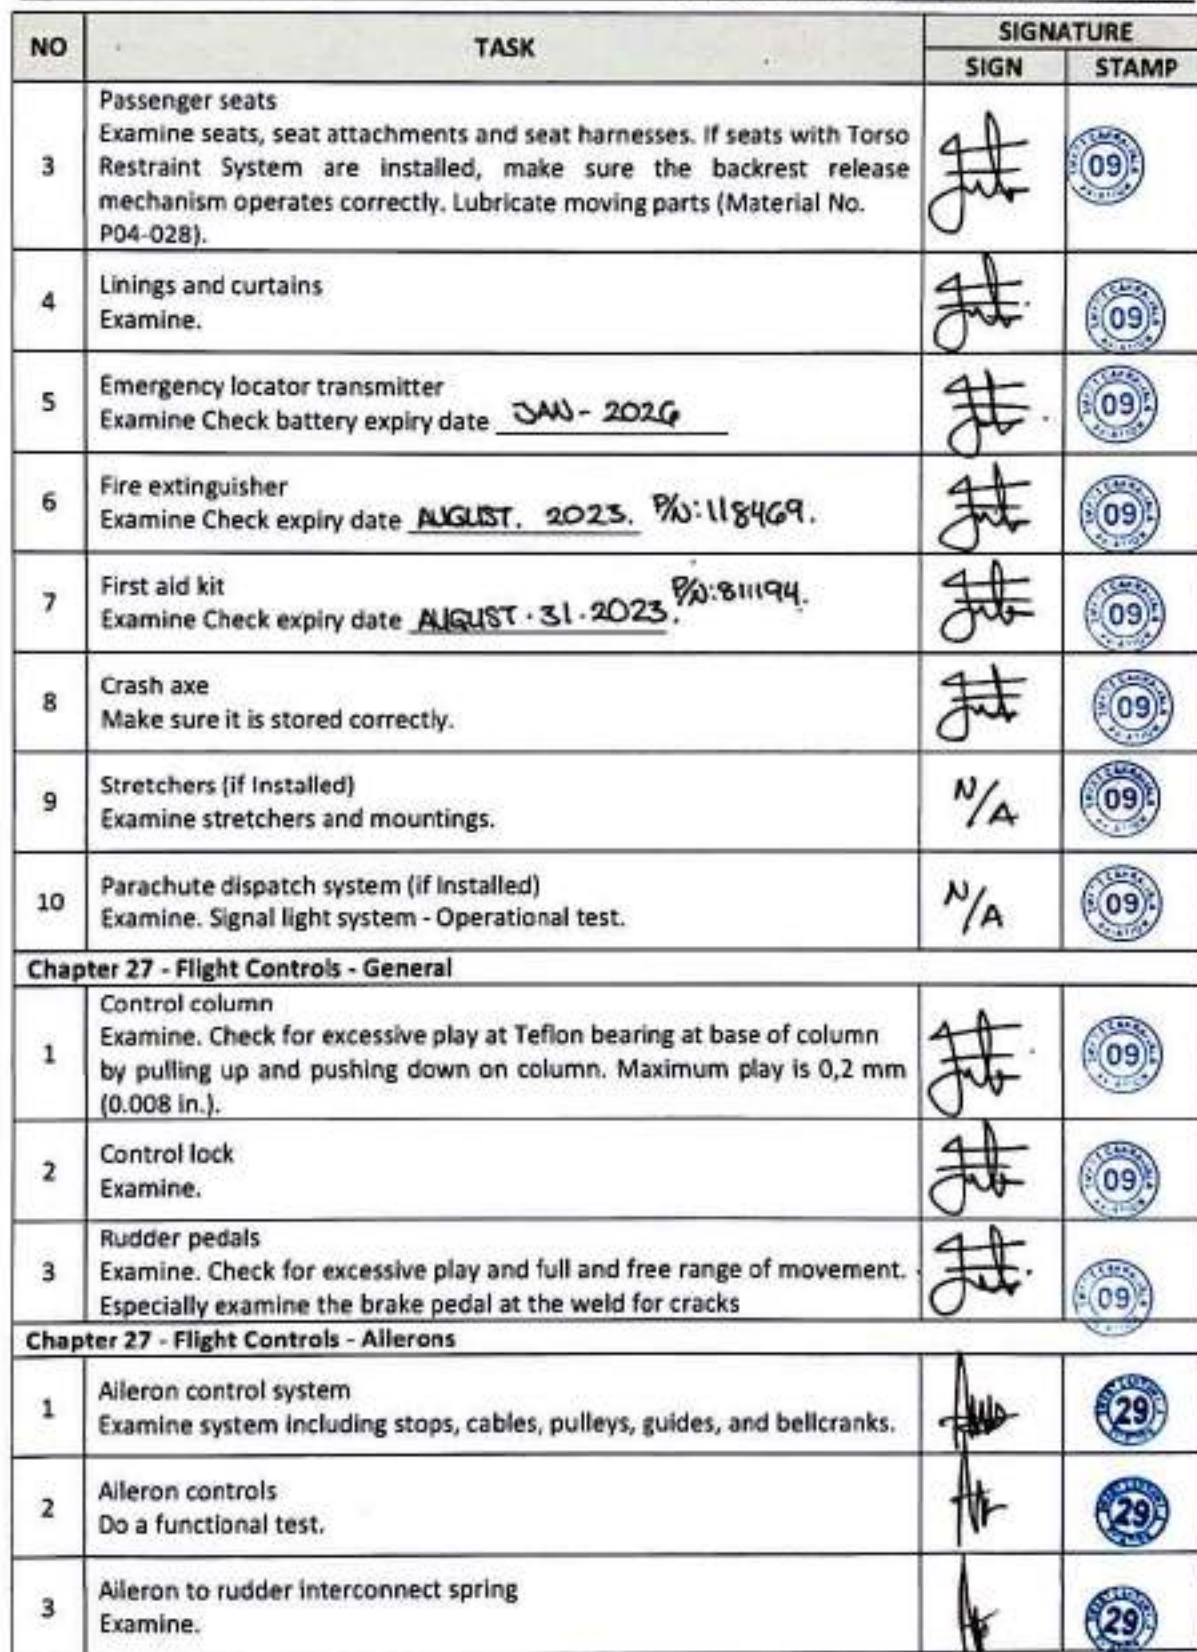 NO TASK SIGNATURE
SIGN STAMP
Passenger seats
Examine seats, seat attachments and seat harnesses. If seats with Torso
3 Restraint System are installed, make sure the backrest release 09
mechanism operates correctly. Lubricate moving parts (Material No.
P04-028).
Linings and curtains
4 Examine. 09
Emergency locator transmitter
5 Examine Check battery expiry date JAN - 2026 09
Fire extinguisher
6 Examine Check expiry date AUGUST. 2023. P/N:118469. 09
First aid kit
7 Examine Check expiry date AUGUST.31.2023. P/N:811194. 09
Crash axe
8 Make sure it is stored correctly. 09
Stretchers (if Installed)
9 Examine stretchers and mountings. N/A 09
Parachute dispatch system (if Installed)
10 Examine. Signal light system - Operational test. N/A 09
Chapter 27 - Flight Controls - General
Control column
Examine. Check for excessive play at Teflon bearing at base of column
1 by pulling up and pushing down on column. Maximum play is 0,2 mm 09
(0.008 in.).
Control lock
2 Examine. 09
Rudder pedals
3 Examine. Check for excessive play and full and free range of movement.
Especially examine the brake pedal at the weld for cracks 09
Chapter 27 - Flight Controls - Ailerons
Aileron control system
1 Examine system including stops, cables, pulleys, guides, and bellcranks. 29
Aileron controls
2 Do a functional test. 29
Aileron to rudder interconnect spring
3 Examine. 29